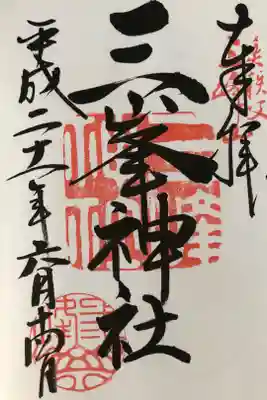 奉拝
三峯神社
平成二十一年六月十四日